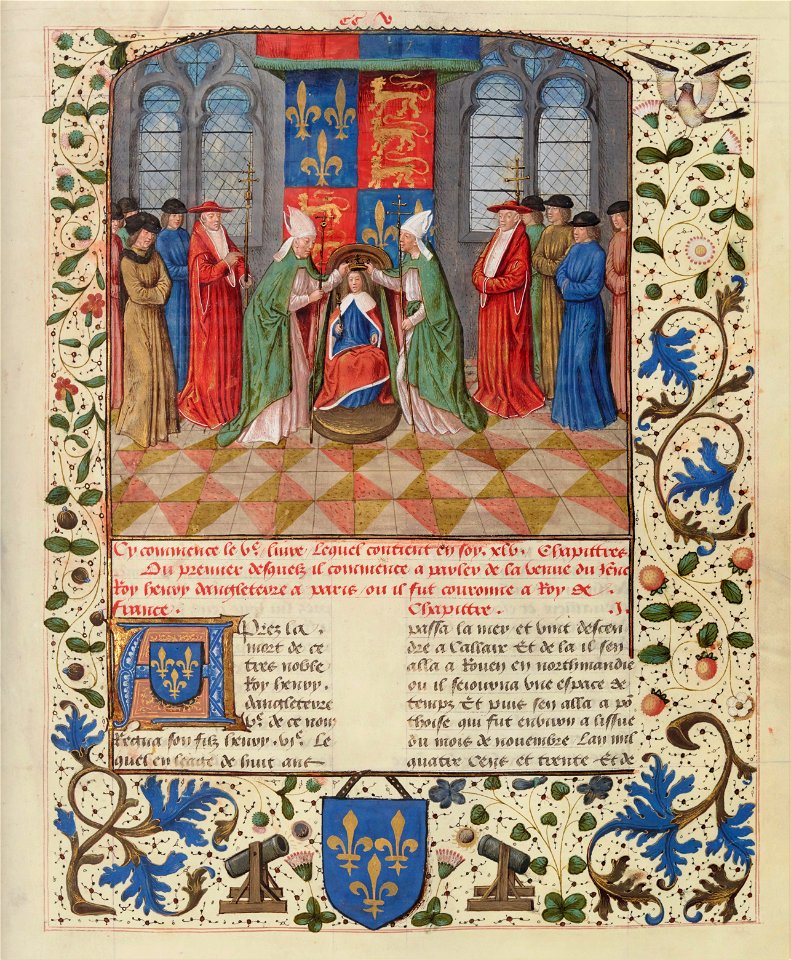 cc v
Cy commence le v.e livre Lequel contient en soy. xlv. Chapittres
Du premier desquelz il commence a parler de la venue du Jene
Roy henry dangleterre a paris ou il fut couronne a Roy de
france. Chapittre. I.
APrez la
mort de ce
tres noble
Roy henry.
dangleterre
v.e de ce nom
Regna son filz henry. vi.e Le
quel en leage de huit ans
passa la mer et vint descen
dre a Callaix Et de la il sen
alla a Rouen en northmandie
ou il seiourna vne espace de
temps Et puis sen alla a po
thoise qui fut enuiron a lissue
du mois de nouembre Lan mil
quatre Cens et trente Et de